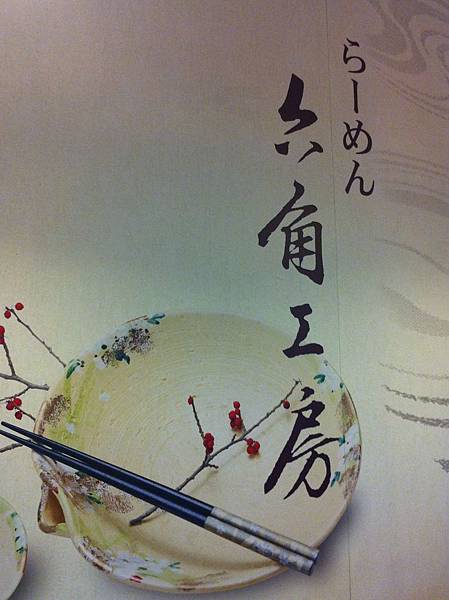 らーめん
六角工房